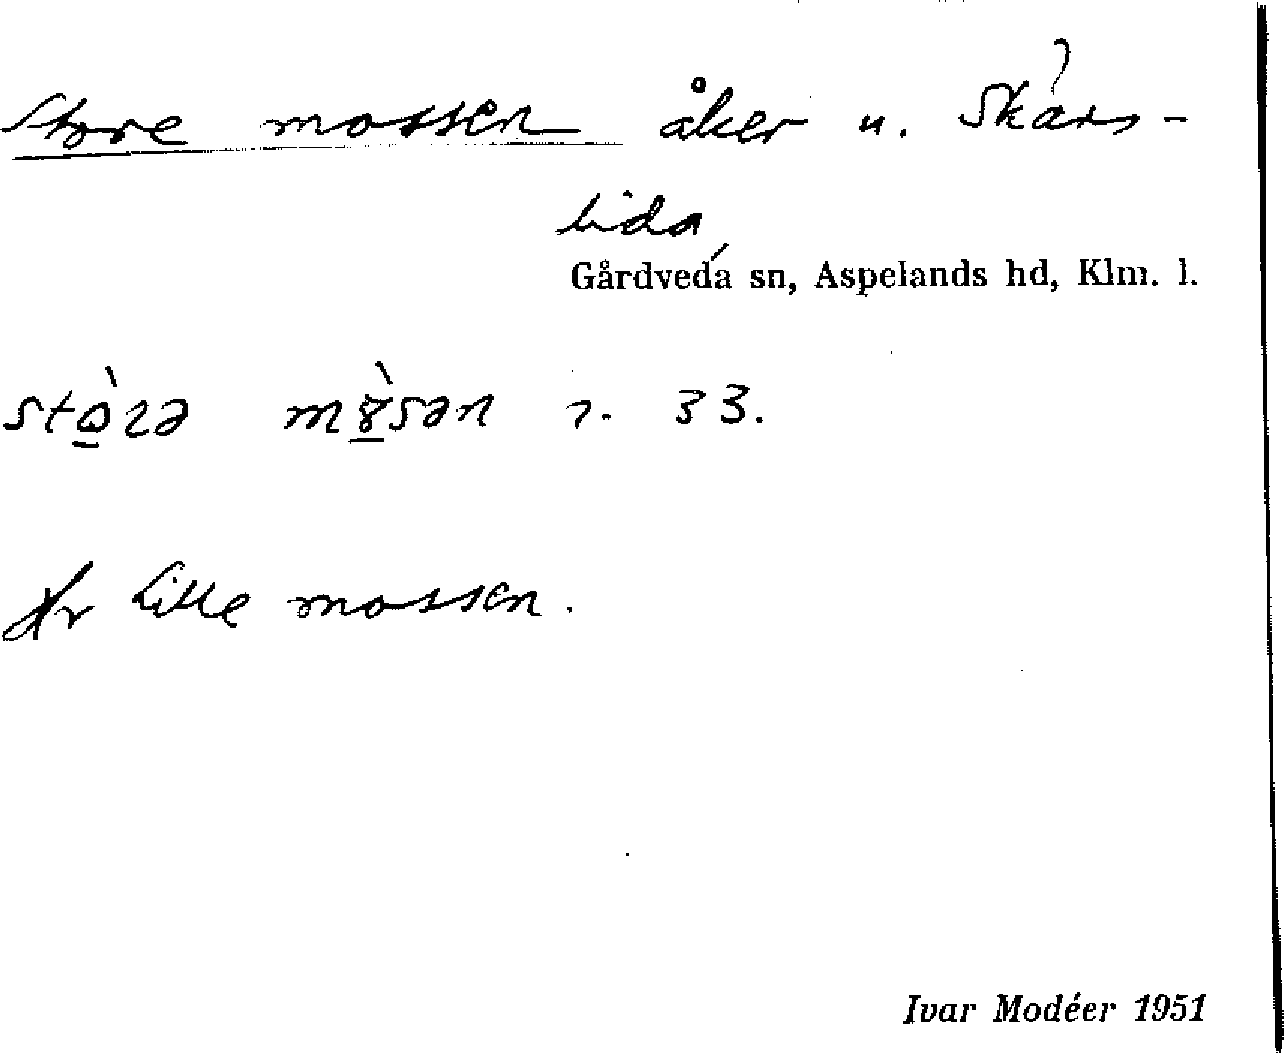 Store mossen åker u. Skårs-
lida,
Gårdveda sn, Aspelands hd, Klm. l.
stòrə mòsən r. 33.
Jfr Lille mossen.
Ivar Modéer 1951